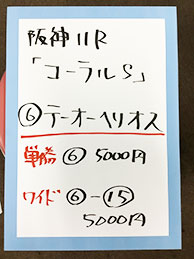 阪神11R
「コーラルS」
⑥テーオーヘリオス
単勝 ⑥ 5000円
ワイド ⑥-⑮
5000円